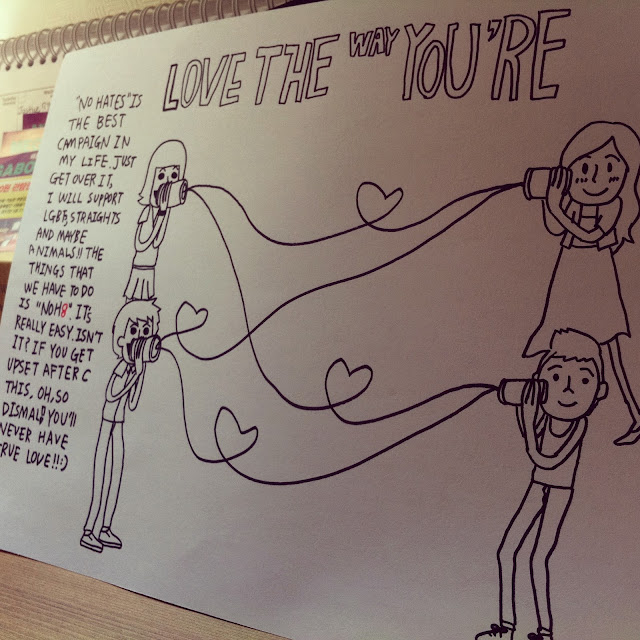 LOVE THE WAY YOU'RE
"NO HATES" IS
THE BEST
CAMPAIGN IN
MY LIFE. JUST
GET OVER IT,
I WILL SUPPORT
LGBT, STRAIGHTS
AND MAYBE
ANIMALS!! THE
THINGS THAT
WE HAVE TO DO
IS "NOH8" IT'S
REALLY EASY. ISN'T
IT? IF YOU GET
UPSET AFTER C
THIS, OH, SO
DISMAL! YOU'll
NEVER HAVE
TRUE LOVE!!:)